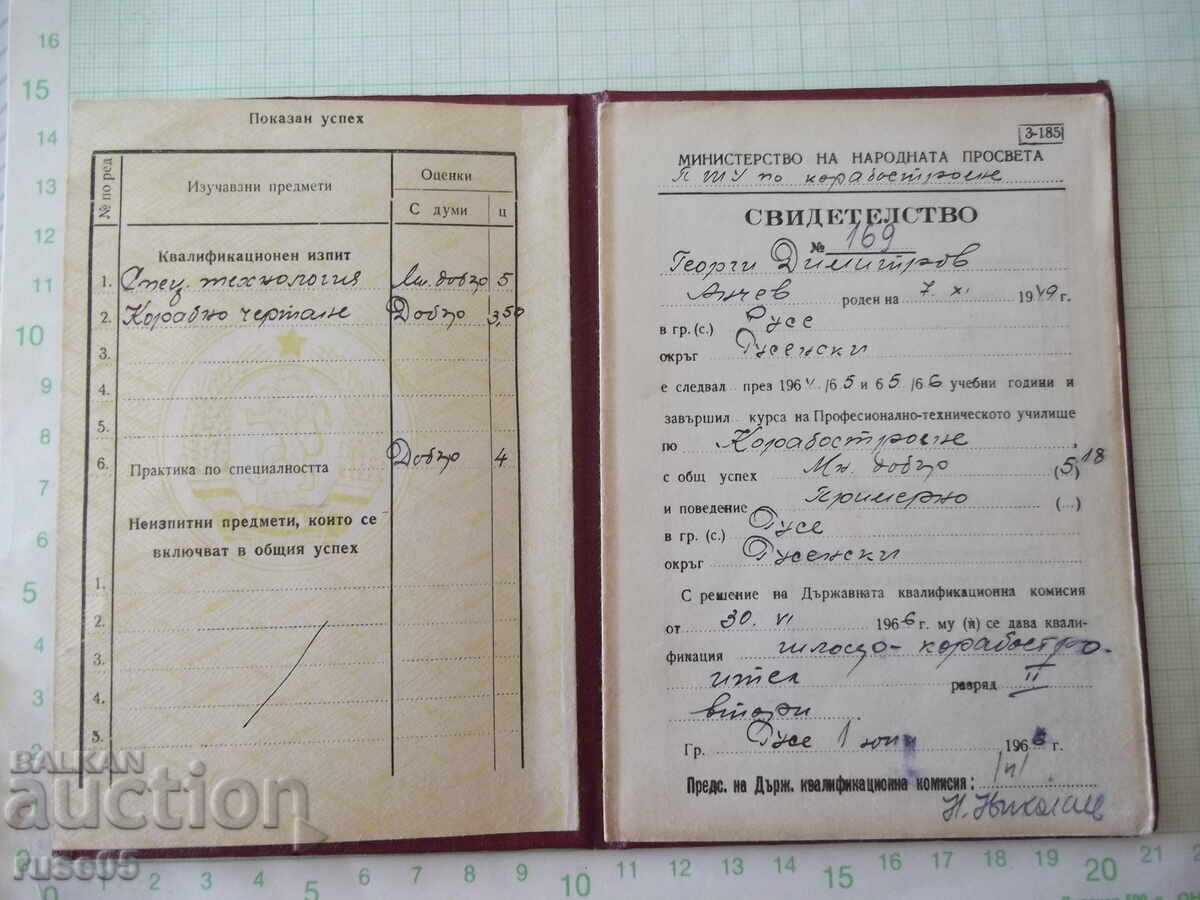 Показан успех
№ по ред
Изучавани предмети
Оценки
С думи
ц
Квалификационен изпит
1. Спец. технология Мн. добър 5
2. Корабно чертане Добър 3,50
3.
4.
5.
6. Практика по специалността Добър 4
Неизпитни предмети, които се
включват в общия успех
1.
2.
3.
4.
5.
З-185
МИНИСТЕРСТВО НА НАРОДНАТА ПРОСВЕТА
ПТУ по корабостроене
СВИДЕТЕЛСТВО
№ 169
Георги Димитров
Анчев роден на 7. XI 1949 г.
в гр. (с.) Русе
окръг Русенски
е следвал през 1964/65 и 65/66 учебни години и
завършил курса на Професионално-техническото училище
по Корабостроене
с общ успех Мн. добър (5) 18
и поведение Примерно (...)
в гр. (с.) Русе
окръг Русенски
С решение на Държавната квалификационна комисия
от 30. VI 1966 г. му (ѝ) се дава квали-
фикация шлосер-корабостро-
ител разряд II
втори
Гр. Русе 1 юли 1966 г.
Предс. на Държ. квалификационна комисия: /п/
BALKAN
auction
ruse05
16
15
14
13
12
11
10
9
8
7
6
5
4
3
2
0 1 2 3 4 5 6 7 8 9 10 11 12 13 14 15 16 17 18 19 20 21 22